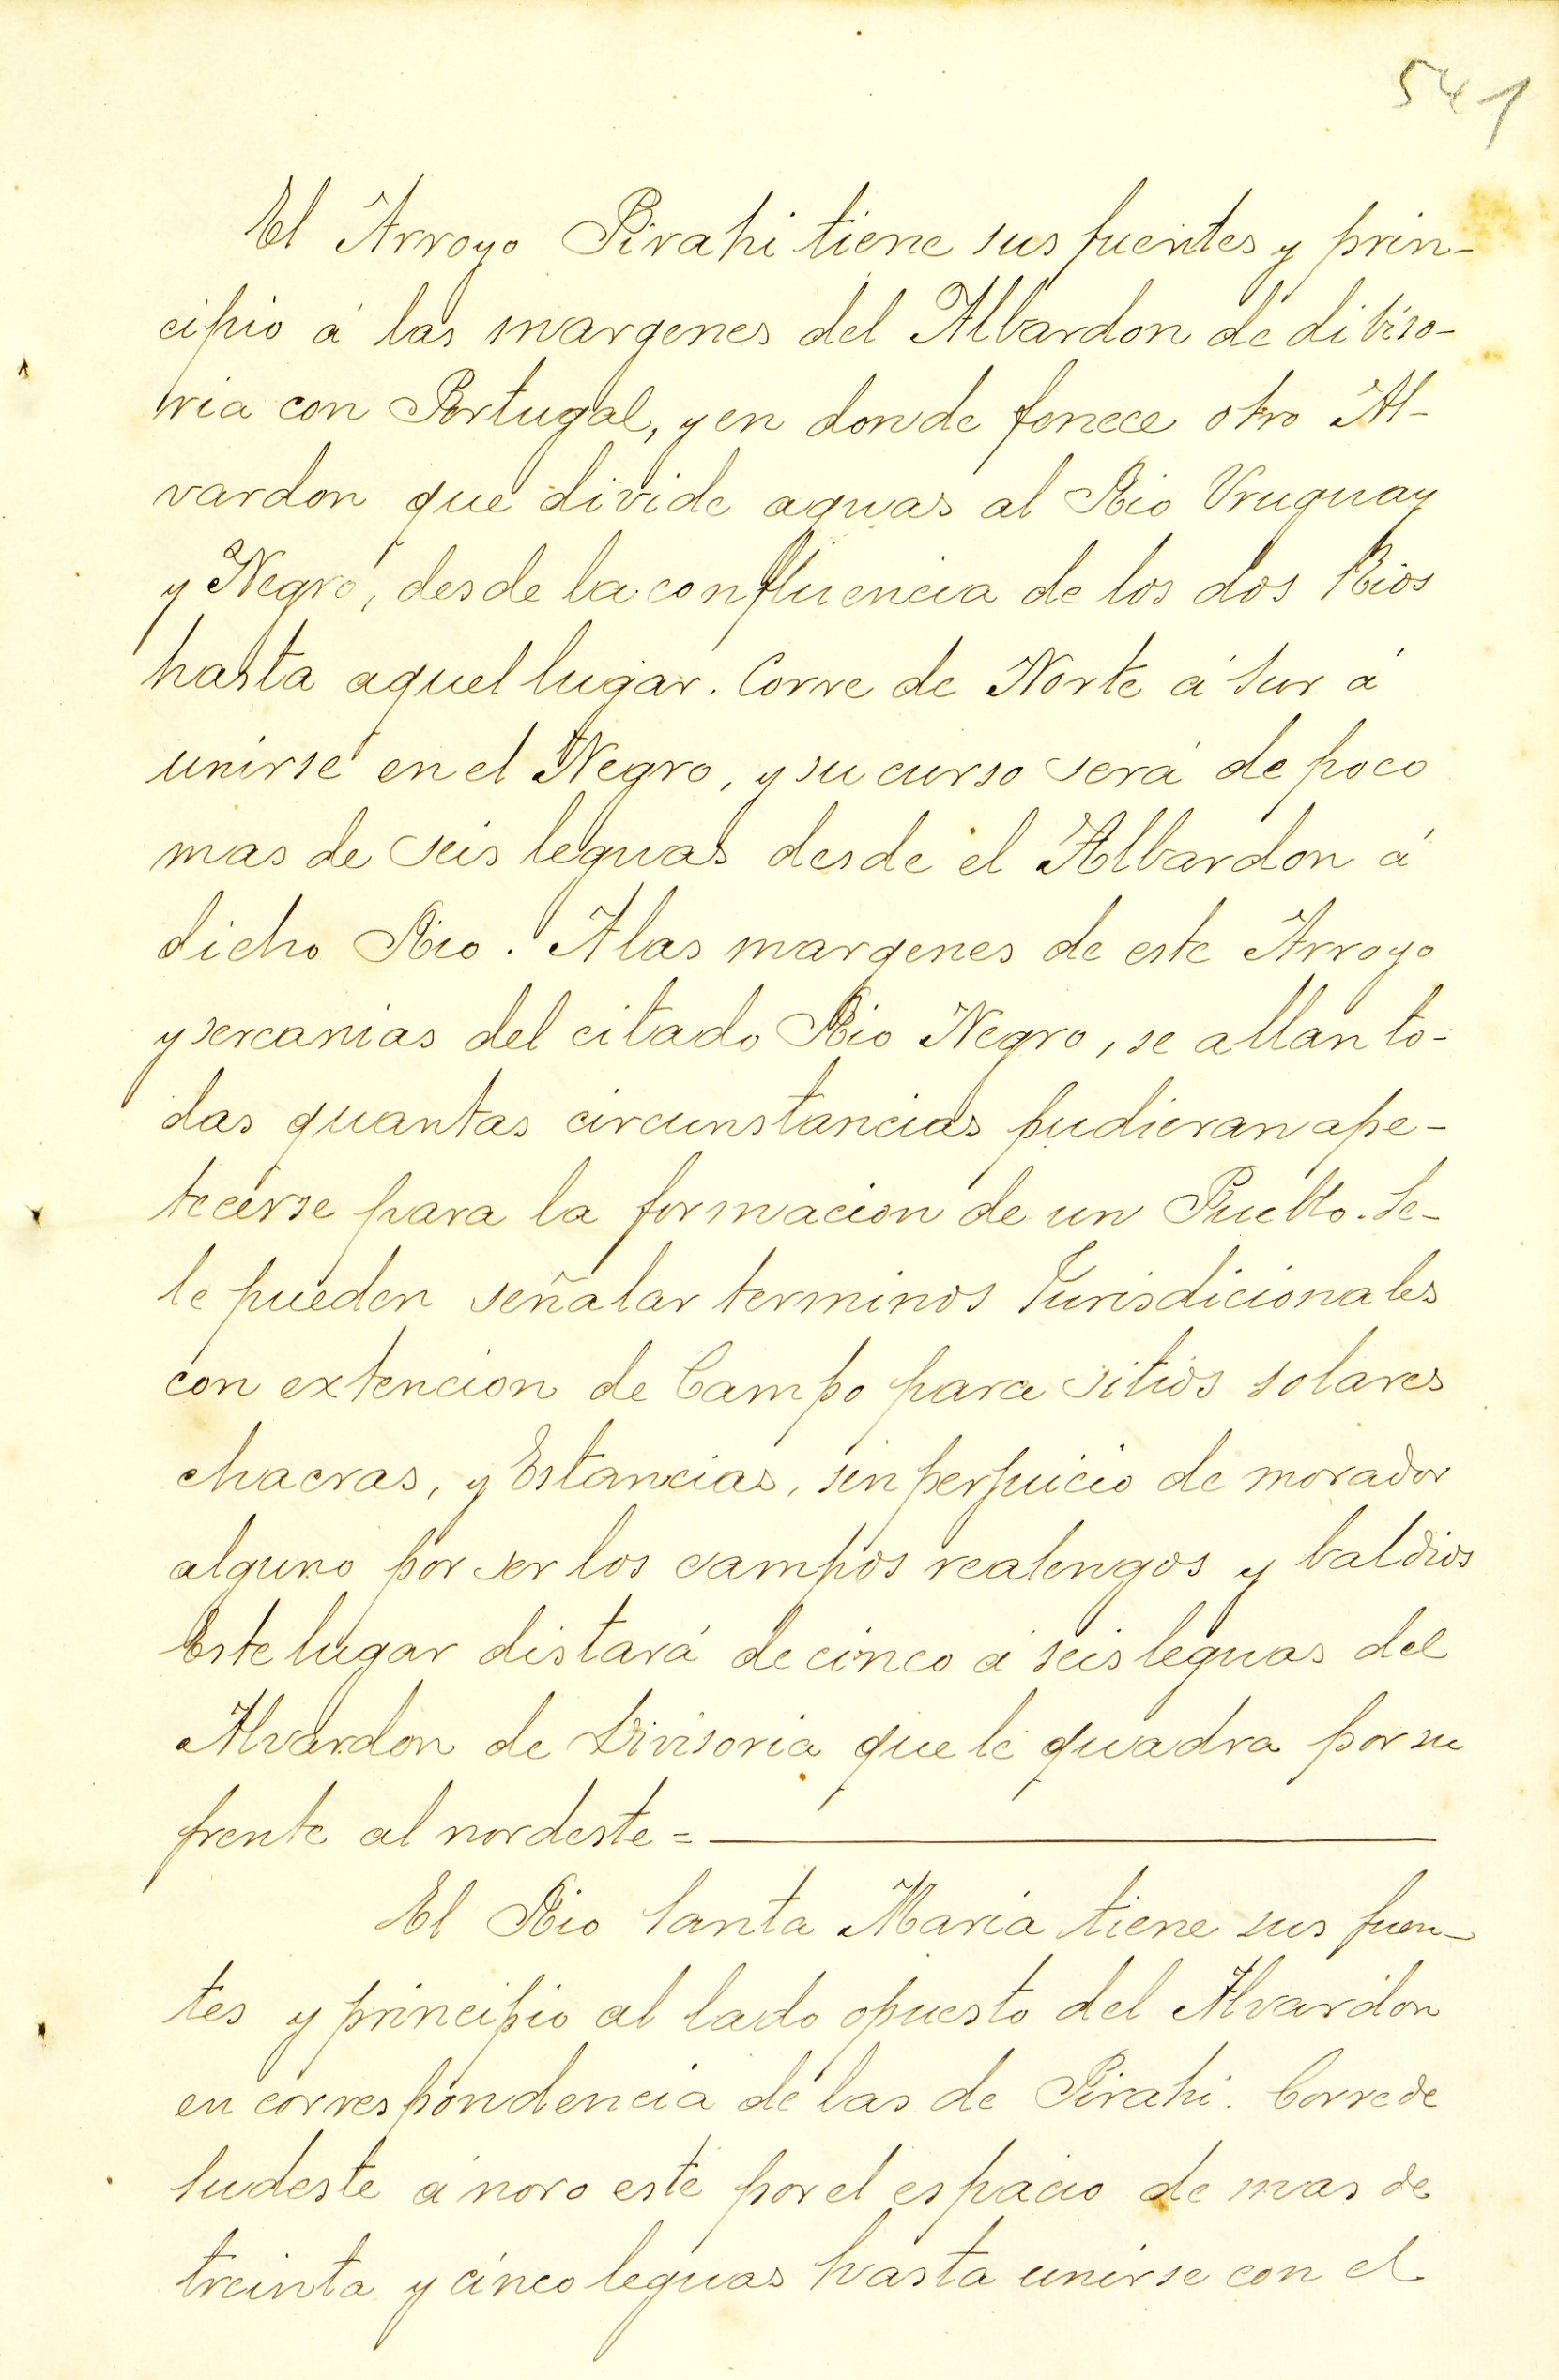 541
El Arroyo Pirahi tiene sus fuentes y prin-
cipio á las margenes del Albardon de dibiso-
ria con Portugal, y en donde fenece otro Al-
vardon que divide aguas al Rio Uruguay
y Negro, desde la confluencia de los dos Rios
hasta aquel lugar. Corre de Norte á Sur á
unirse en el Negro, y su curso será de poco
mas de seis leguas desde el Albardon á
dicho Rio. A las margenes de este Arroyo
y sercanias del citado Rio Negro, se allan to-
das quantas circunstancias pudieran ape-
tecerse para la formacion de un Pueblo. Se-
le pueden señalar terminos Jurisdicionales
con extencion de Campo para sitios solares
chacras, y Estancias, sin perjuicio de morador
alguno por ser los campos realengos y baldios
Este lugar distará de cinco á seis leguas del
Alvardon de Divisoria que le quadra por su
frente al nordeste =
El Rio Santa Maria tiene sus fuen-
tes y principio al lado opuesto del Alvardon
en correspondencia de las de Pirahi. Corre de
Sudeste á noroeste por el espacio de mas de
treinta y cinco leguas hasta unirse con el